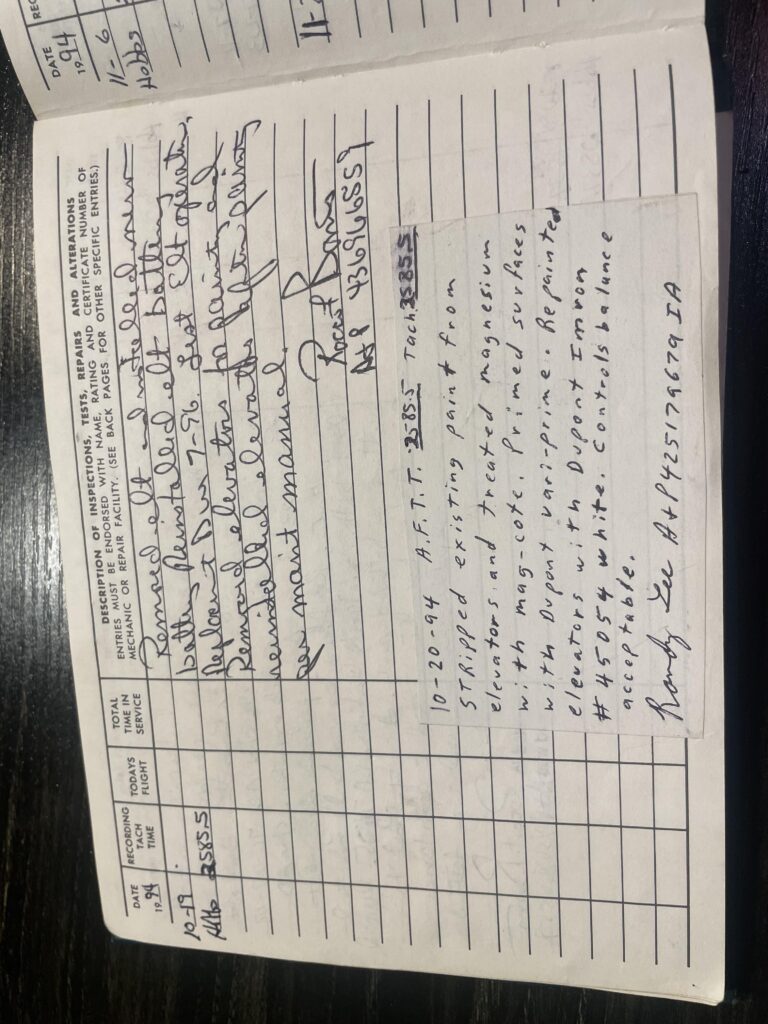 DATE
19 94
RECORDING
TACH
TIME
TODAYS
FLIGHT
TOTAL
TIME IN
SERVICE
DESCRIPTION OF INSPECTIONS, TESTS, REPAIRS AND ALTERATIONS
ENTRIES MUST BE ENDORSED WITH NAME, RATING AND CERTIFICATE NUMBER OF
MECHANIC OR REPAIR FACILITY. (SEE BACK PAGES FOR OTHER SPECIFIC ENTRIES.)
10-19 Removed elt and installed new
2585.5 battery Reinstalled elt battery
Replacement Due 7-96. Test Elt operation.
Removed elevators for painting and
reinstalled elevators after painting
per maint manual.
A&P 436966559
10-20-94 A.F.T.T. 2585.5 Tach 2585.5
Stripped existing paint from
elevators and treated magnesium
with mag-cote. Primed surfaces
with Dupont vari-prime. Repainted
elevators with Dupont Imron
#45054 white. Controls balance
acceptable.
Randy Lee A+P425179679 IA
DATE
19 94
11-6
Hobbs
REC
11-